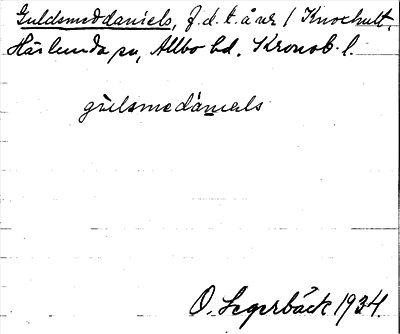 Guldsmeddaniels, f.d.t. å nr 1 Knoxhult,
Härlunda sn, Allbo hd. Kronob. l.
gùlsmedànials
O. Segerbäck 1934.